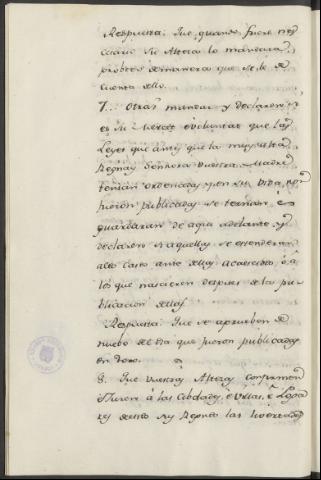 Respuesta: Que, quando fuere nec
esario Su Alteza lo mandara
proveer de manera que se le de
cuenta dello.
7... Otrasi mandar y declaren si
es su merced e voluntat que las
Leyes que antes que la muy alta
Reyna y Señora vuestra Madre
tenian ordenadas y en su vida no
fueron publicadas se ternan e
guardaran de aqui adelante y
declaren si aquellas se estenderan
alos casos ante dellas acaescidos, ó a
los que nascieren despues de las pu
blicacion dellas.
Respuesta: Que se aprueben de
nuevo del dia que fueron publicadas
en Toro.
8. Que vuestras Altezas confirmen
é Juren á las Cibdades, é Villas, é Lugar
es destos sus Reynos las livertades